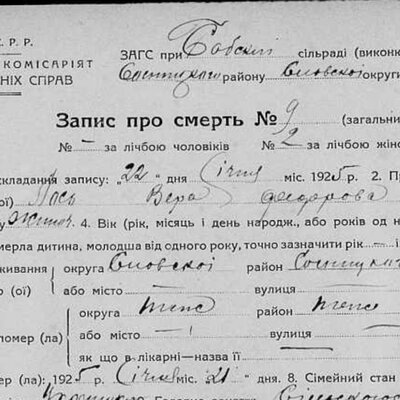 С. Р. Р.
КОМІСАРІЯТ
НІХ СПРАВ
ЗАГС при Бабській сільраді (виконк
Сосницького району Сновської округи
Запис про смерть № 9 (загальни
№ — за лічбою чоловіків № 2 за лічбою жіно
складання запису: „22" дня Січня міс. 1925 р. 2. Пр
Лось Вера Федорова
4. Вік (рік, місяць і день народж., або років од н
мерла дитина, молодша від одного року, точно зазначити рік — і
живання округа Сновської район Сосницьк
(ої) або місто — вулиця —
округа тис район тис
помер (ла) або місто — вулиця —
як що в лікарні—назва її
ер (ла): 1925 р. Січня міс. „21" дня. 8. Сімейний стан